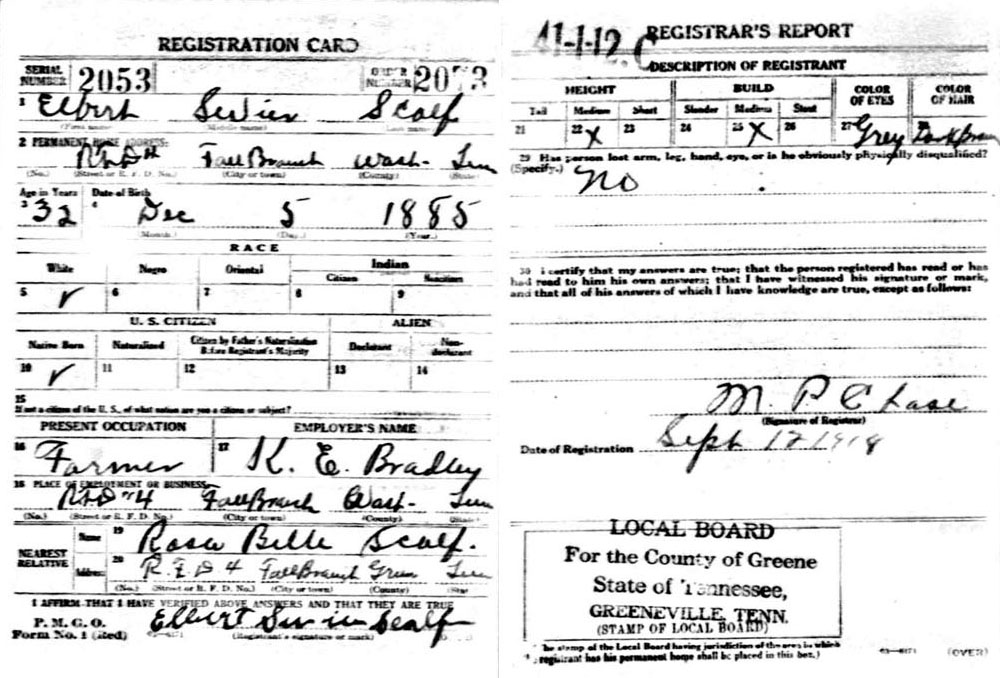 REGISTRATION CARD
SERIAL NUMBER 2053 ORDER NUMBER 2073
1 Elbert Scalf
(First name) (Middle name) (Last name)
2 PERMANENT HOME ADDRESS:
Fall Branch Wash- Tenn
(No.) (Street or R. F. D. No.) (City or town) (County) (State)
Age in Years Date of Birth
3 32 4 Dec 5 1885
(Month.) (Day.) (Year.)
RACE
White Negro Oriental Indian
Citizen Noncitizen
5 ✓ 6 7 8 9
U. S. CITIZEN ALIEN
Native Born Naturalized Citizen by Father's Naturalization Before Registrant's Majority Declarant Non-declarant
10 ✓ 11 12 13 14
15
If not a citizen of the U. S., of what nation are you a citizen or subject?
PRESENT OCCUPATION EMPLOYER'S NAME
16 Farmer 17 K. E. Bradley
18 PLACE OF EMPLOYMENT OR BUSINESS:
RFD #4 Fall Branch Wash- Tenn
(No.) (Street or R. F. D. No.) (City or town) (County) (State)
NEAREST RELATIVE
Name 19 Rosa Belle Scalf.
Address 20 R. F. D 4 Fall Branch Tenn
(No.) (Street or R. F. D. No.) (City or town) (County) (State
I AFFIRM THAT I HAVE VERIFIED ABOVE ANSWERS AND THAT THEY ARE TRUE
P. M. G. O.
Form No. 1 (Red) Elbert Scalf
(Registrant's signature or mark)
41-1-12. C REGISTRAR'S REPORT
DESCRIPTION OF REGISTRANT
HEIGHT BUILD COLOR OF EYES COLOR OF HAIR
Tall Medium Short Slender Medium Stout
21 22 X 23 24 25 X 26 27 Grey 28 Dark Brown
29 Has person lost arm, leg, hand, eye, or is he obviously physically disqualified?
(Specify.) No
30 I certify that my answers are true; that the person registered has read or has
had read to him his own answers; that I have witnessed his signature or mark,
and that all of his answers of which I have knowledge are true, except as follows:
M. P Chase
(Signature of Registrar)
Date of Registration Sept 12 1918
LOCAL BOARD
For the County of Greene
State of Tennessee,
GREENEVILLE, TENN.
(STAMP OF LOCAL BOARD)
The stamp of the Local Board having jurisdiction of the area in which
registrant has his permanent home shall be placed in this box.)
(OVER)